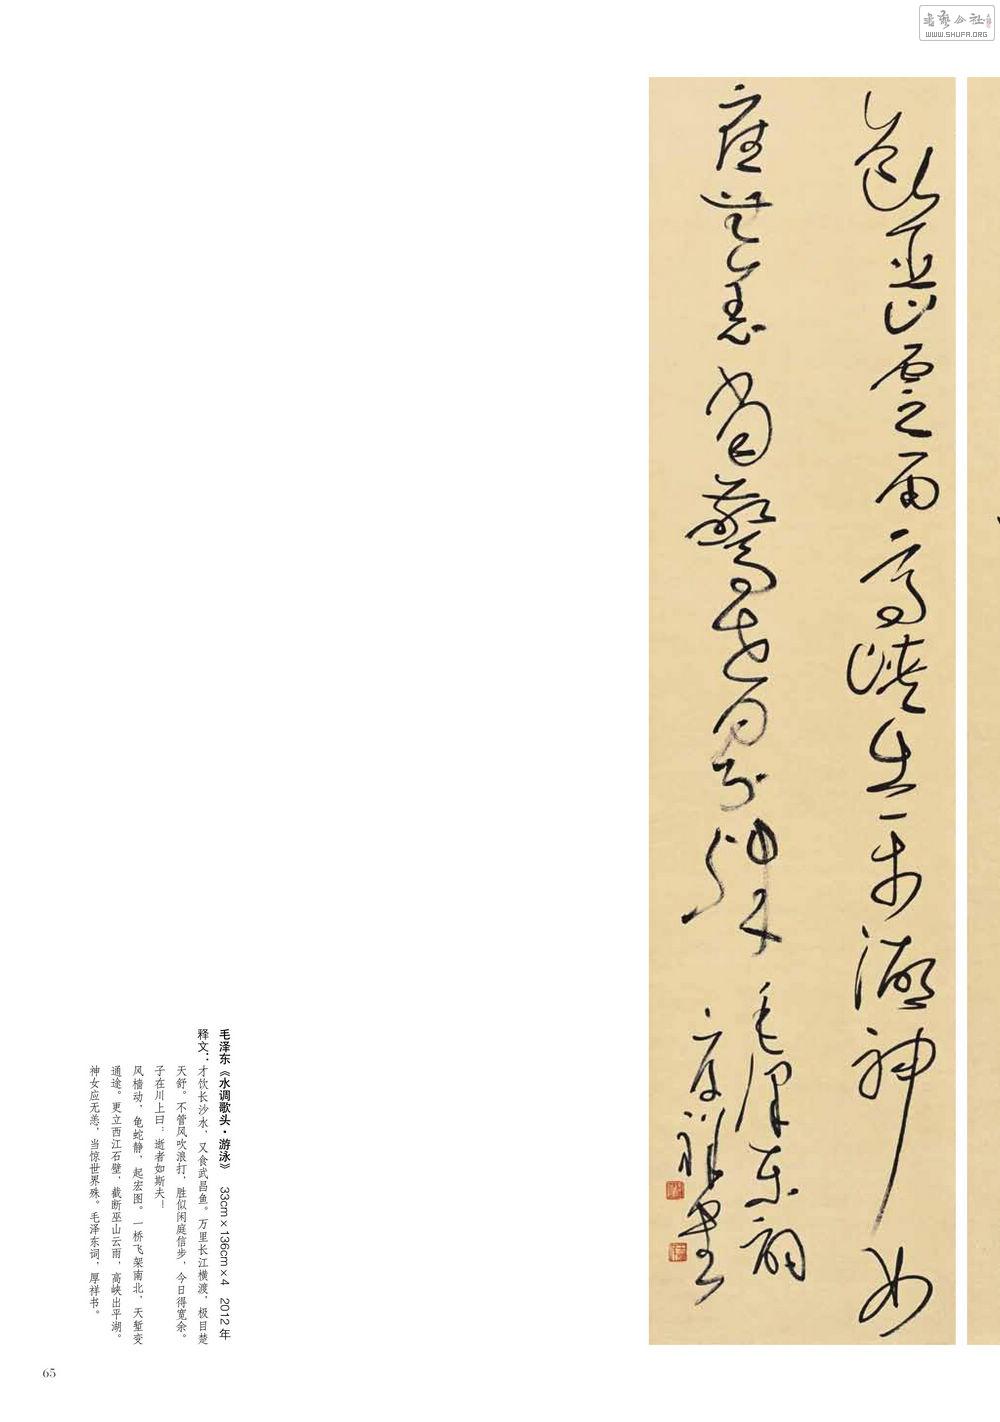 書藝公社
WWW.SHUFA.ORG
断巫山雲雨高峡出平湖神女
應無恙當驚世界殊
毛澤東詞
厚祥書
毛泽东《水调歌头·游泳》 33cm×136cm×4 2012年
释文：才饮长沙水，又食武昌鱼。万里长江横渡，极目楚
天舒。不管风吹浪打，胜似闲庭信步，今日得宽余。
子在川上曰：逝者如斯夫！
风樯动，龟蛇静，起宏图。一桥飞架南北，天堑变
通途。更立西江石壁，截断巫山云雨，高峡出平湖。
神女应无恙，当惊世界殊。毛泽东词，厚祥书。
65